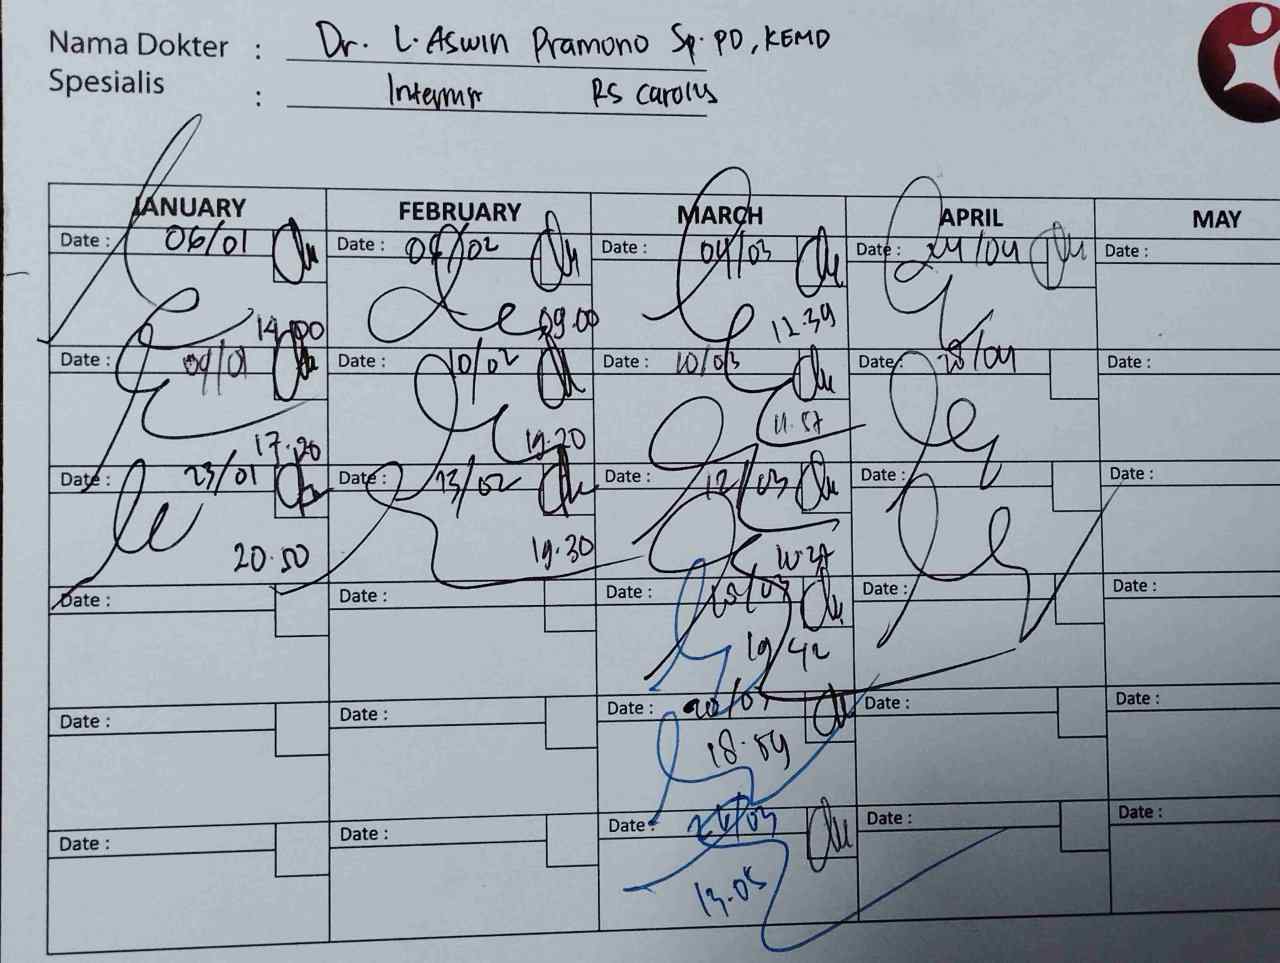 Nama Dokter : Dr. L. Aswin Pramono Sp. PD, KEMD
Spesialis : Internist RS Carolus
JANUARY FEBRUARY MARCH APRIL MAY
Date : 06/01 Date : Date : 04/03 Date : 24/04 Date :
14.00 09.00 12.39
Date : 09/01 Date : 10/02 Date : 10/03 Date : 28/04 Date :
17.20 19.20 11.57
Date : 23/01 Date : 13/02 Date : 12/03 Date : Date :
20.50 19.30
Date : Date : Date : Date : Date :
19/42
Date : Date : Date : Date : Date :
18.59
Date : Date : Date : Date : Date :
13.05